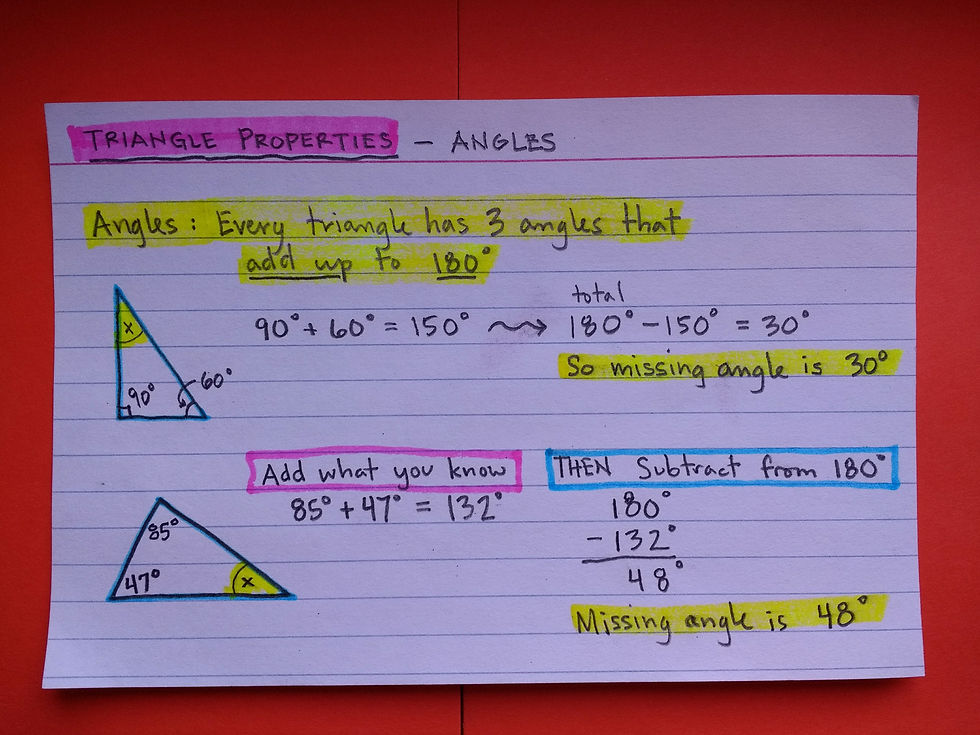 TRIANGLE PROPERTIES - ANGLES
Angles: Every triangle has 3 angles that
add up to 180°
x
90°
60°
90° + 60° = 150°
total
180° - 150° = 30°
So missing angle is 30°
Add what you know
85° + 47° = 132°
THEN Subtract from 180°
180°
- 132°
48°
Missing angle is 48°
85°
47°
x